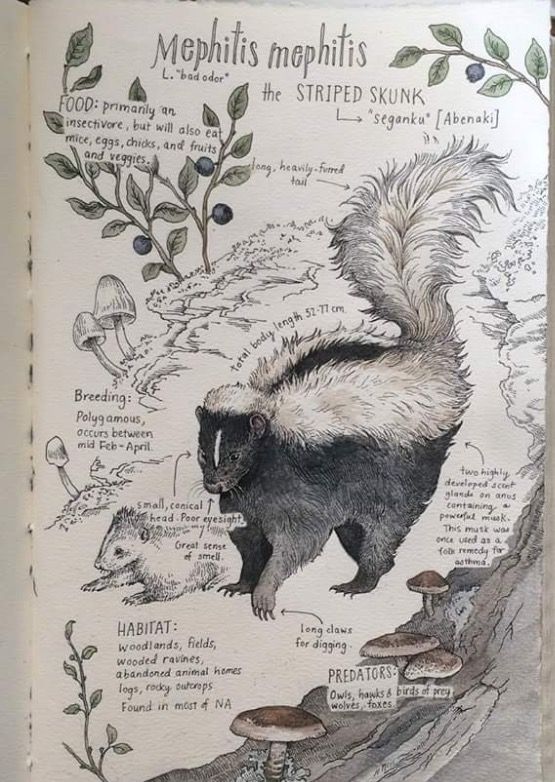 Mephitis mephitis
L. "bad odor"
the STRIPED SKUNK
"seganku" [Abenaki]
FOOD: primarily an
insectivore, but will also eat
mice, eggs, chicks, and fruits
and veggies.
long, heavily-furred
tail
total body length 52-77 cm.
Breeding:
Polygamous,
occurs between
mid Feb-April.
small, conical
head. Poor eyesight,
Great sense
of smell.
two highly
developed scent
glands on anus
containing a
powerful musk.
This musk was
once used as a
folk remedy for
asthma.
long claws
for digging
HABITAT:
Woodlands, fields,
wooded ravines,
abandoned animal homes
logs, rocky outcrops
Found in most of NA
PREDATORS:
Owls, hawks & birds of prey
wolves, foxes